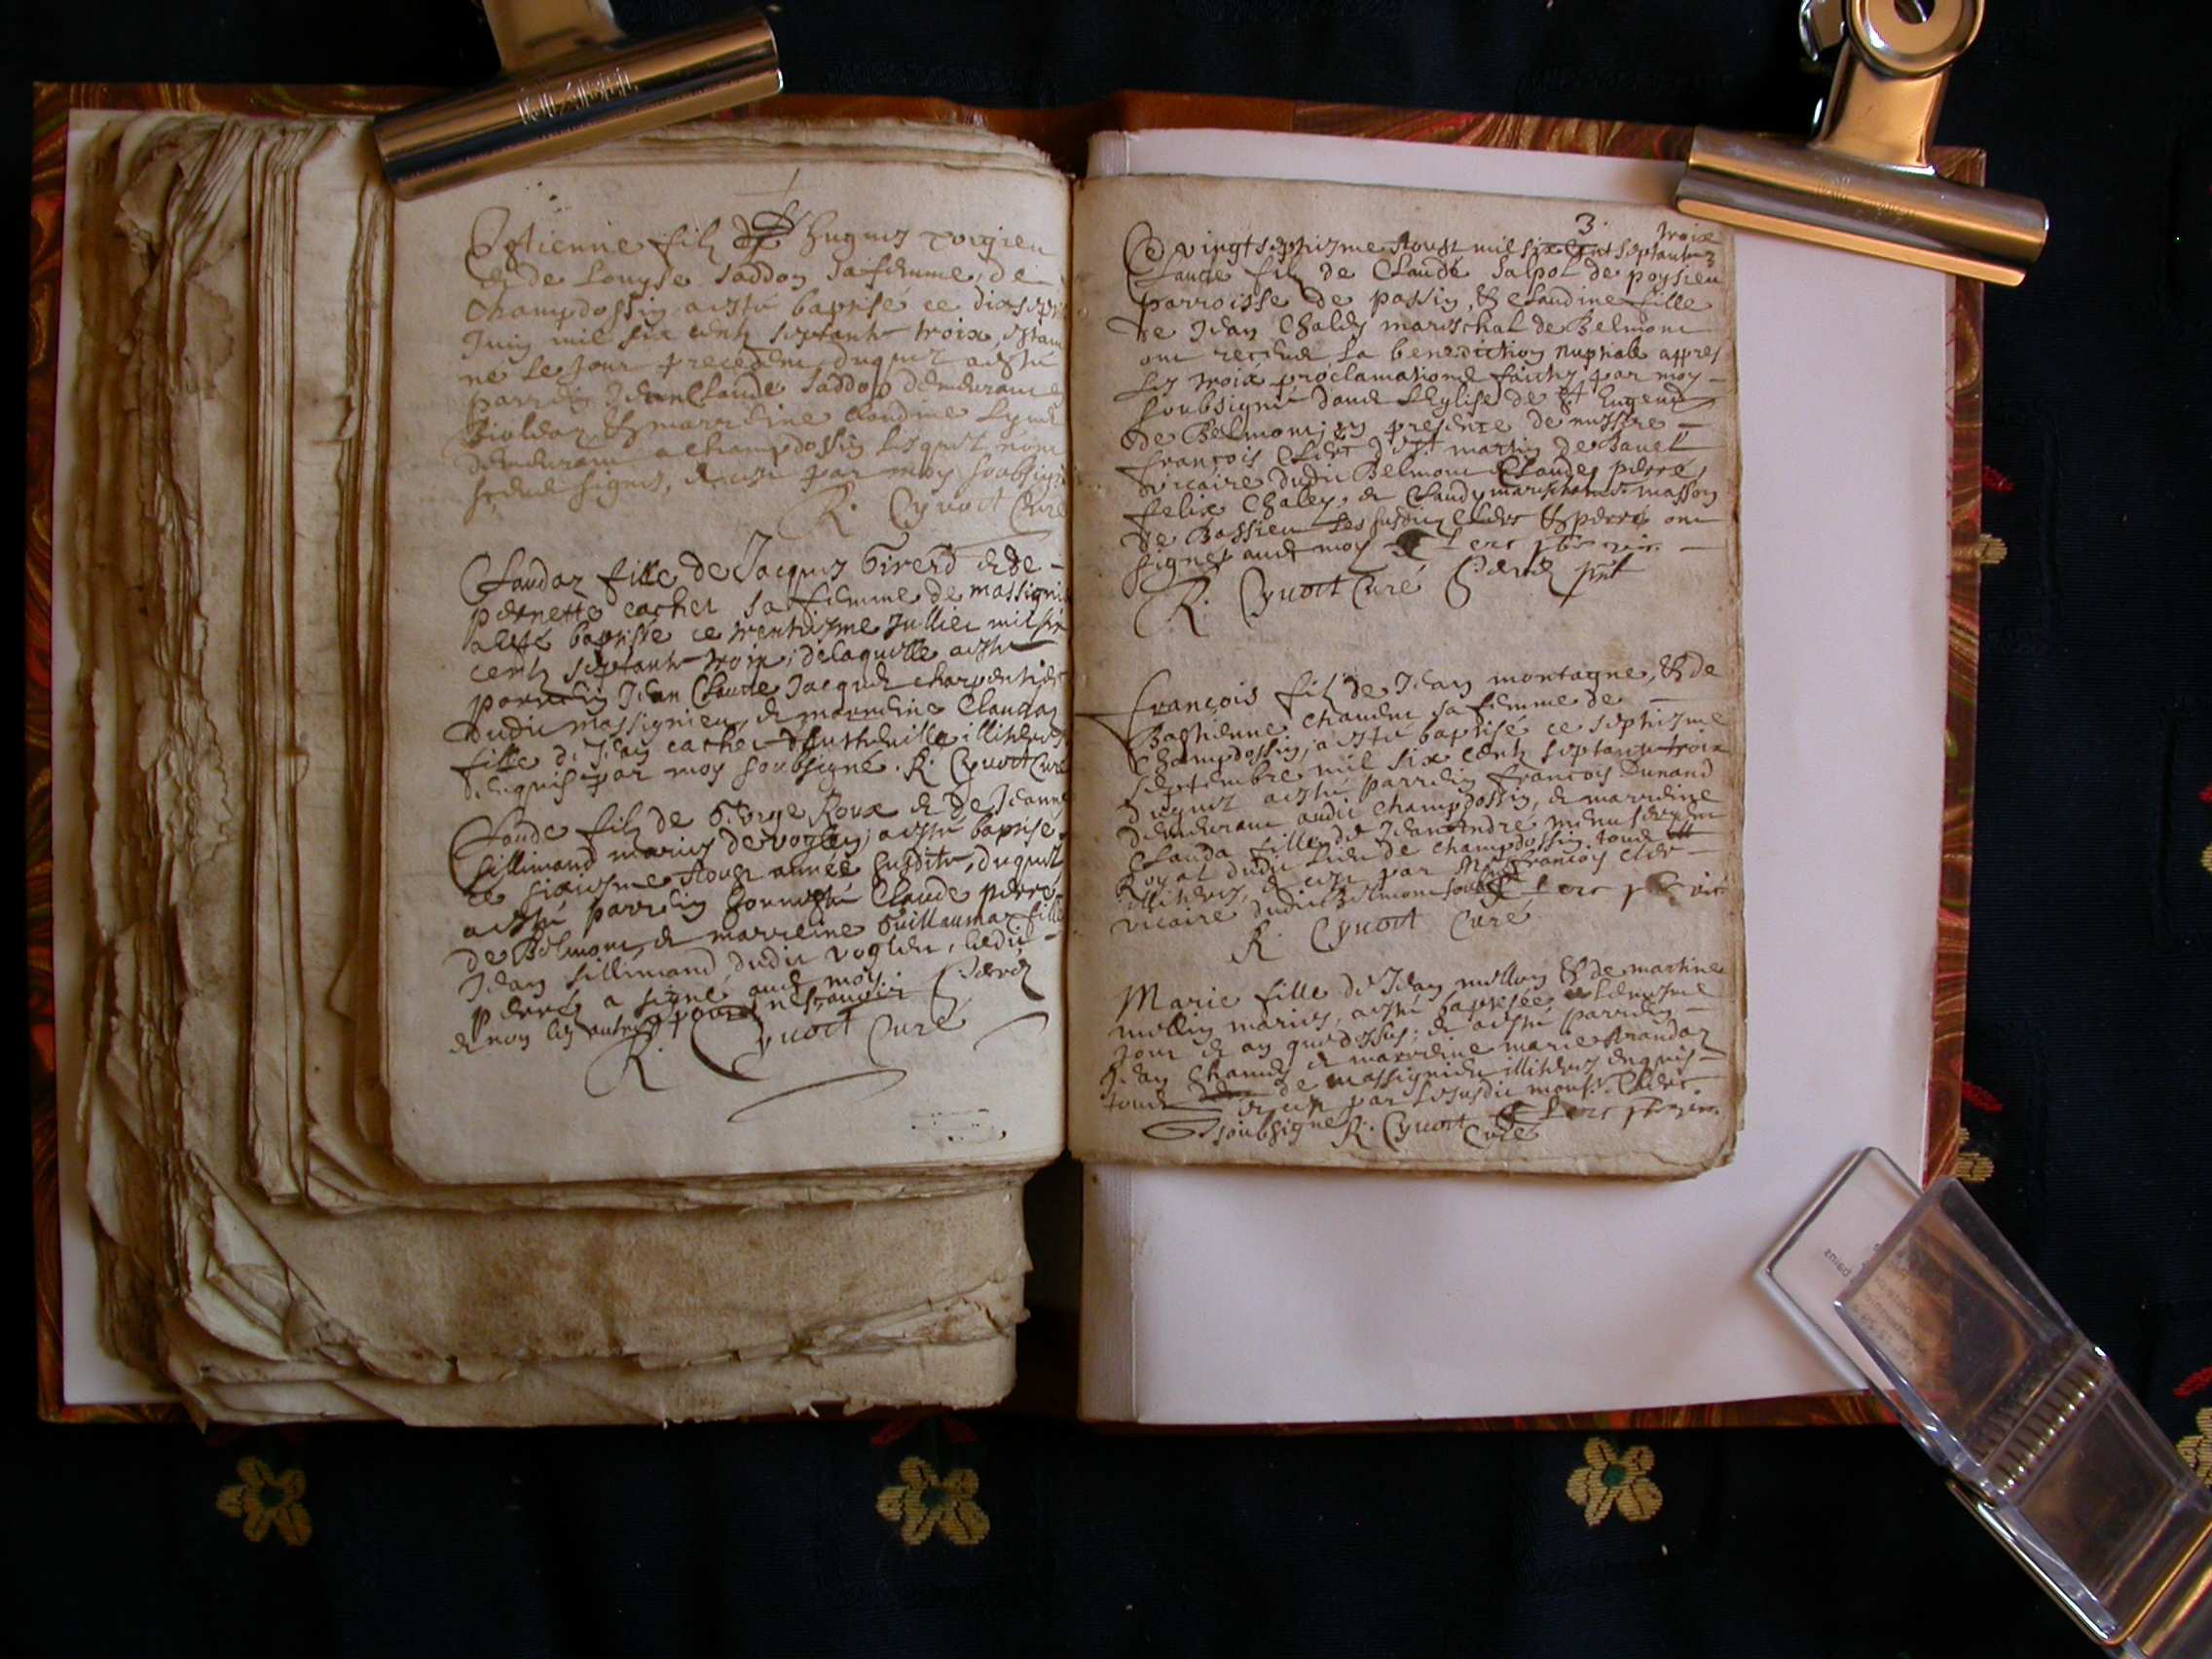 Estienne filz de Hugues
et de Louyse Saddoz sa femme, de
Champdossin a esté baptisé ce
Juin mil six centz septante troix, estant
ne le jour precedent duquel a esté
parrein Jean Claude Saddoz demeurant
et marreine Claudine
demeurant a Champdossin lesquelz n'ont
sceu signer, par moy soubsigné
R. Cyvoct Curé
Claudaz fille de Jacques Girerd et de
pernette cachet sa femme de massignieu
a esté baptisée ce trentiesme Julliet mil six
centz septante troix, de laquelle a esté
parrein Jean Claude Jacquet charpentier
dudit massignieu, et marreine Claudaz
fille de Jean cachet illiterés
enquis par moy soubsigné. R. Cyvoct Curé
Claude filz de George Roux et de Jeanne
sillimand mariés de voglen, a esté baptisé
ce sixiesme Aoust année susdite, duquel
a esté parrein honneste Claude perret
de Belmont, et marreine Guillaumaz fille
Jean sillimand dudit voglen, ledit
perret a signé avec moy
et non les autres pour ne sçavoir
R. Cyvoct Curé
3. troix
Ce vingt septiesme Aoust mil six cent septante 3
Claude filz de Claude Salpol de poysieu
parroisse de passin, et Claudine fille
de Jean Chaley mareschal de Belmont
ont receu la benediction nuptiale apres
les troix proclamations faictes par moy
soubsigné dans l'Eglise de St Eugend
de Belmont, en presence de messire
françois Clerc de St martin de Bavel
vicaire dudit Belmont Claude perret,
felix Chaley, et Claudy mareschal masson
de Bassieu les susditz Clerc et perret ont
signés avec moy Clerc pbre vic.
R. Cyvoct Curé
françois filz de Jean montagne, et de
Bastienne chaudet sa femme de
Champdossin, a esté baptisé ce septiesme
septembre mil six centz septante troix
duquel a esté parrein francois Dunand
demeurant audit Champdossin, et marreine
Clauda fille de Jean André
Royal dudit lieu de Champdossin tous
illiterés, par Mre francois clerc
vicaire dudit Belmont Clerc pbre vic
R. Cyvoct Curé
Marie fille de Jean mollin et de martine
mollin mariés, a esté baptisée
jour et an que dessus; et a esté parrein
Jean et marreine marie
tous de massignieu illiterés enquis
par le susdit mons. Clerc
soubsigné R. Cyvoct Clerc pbre vic.
Curé